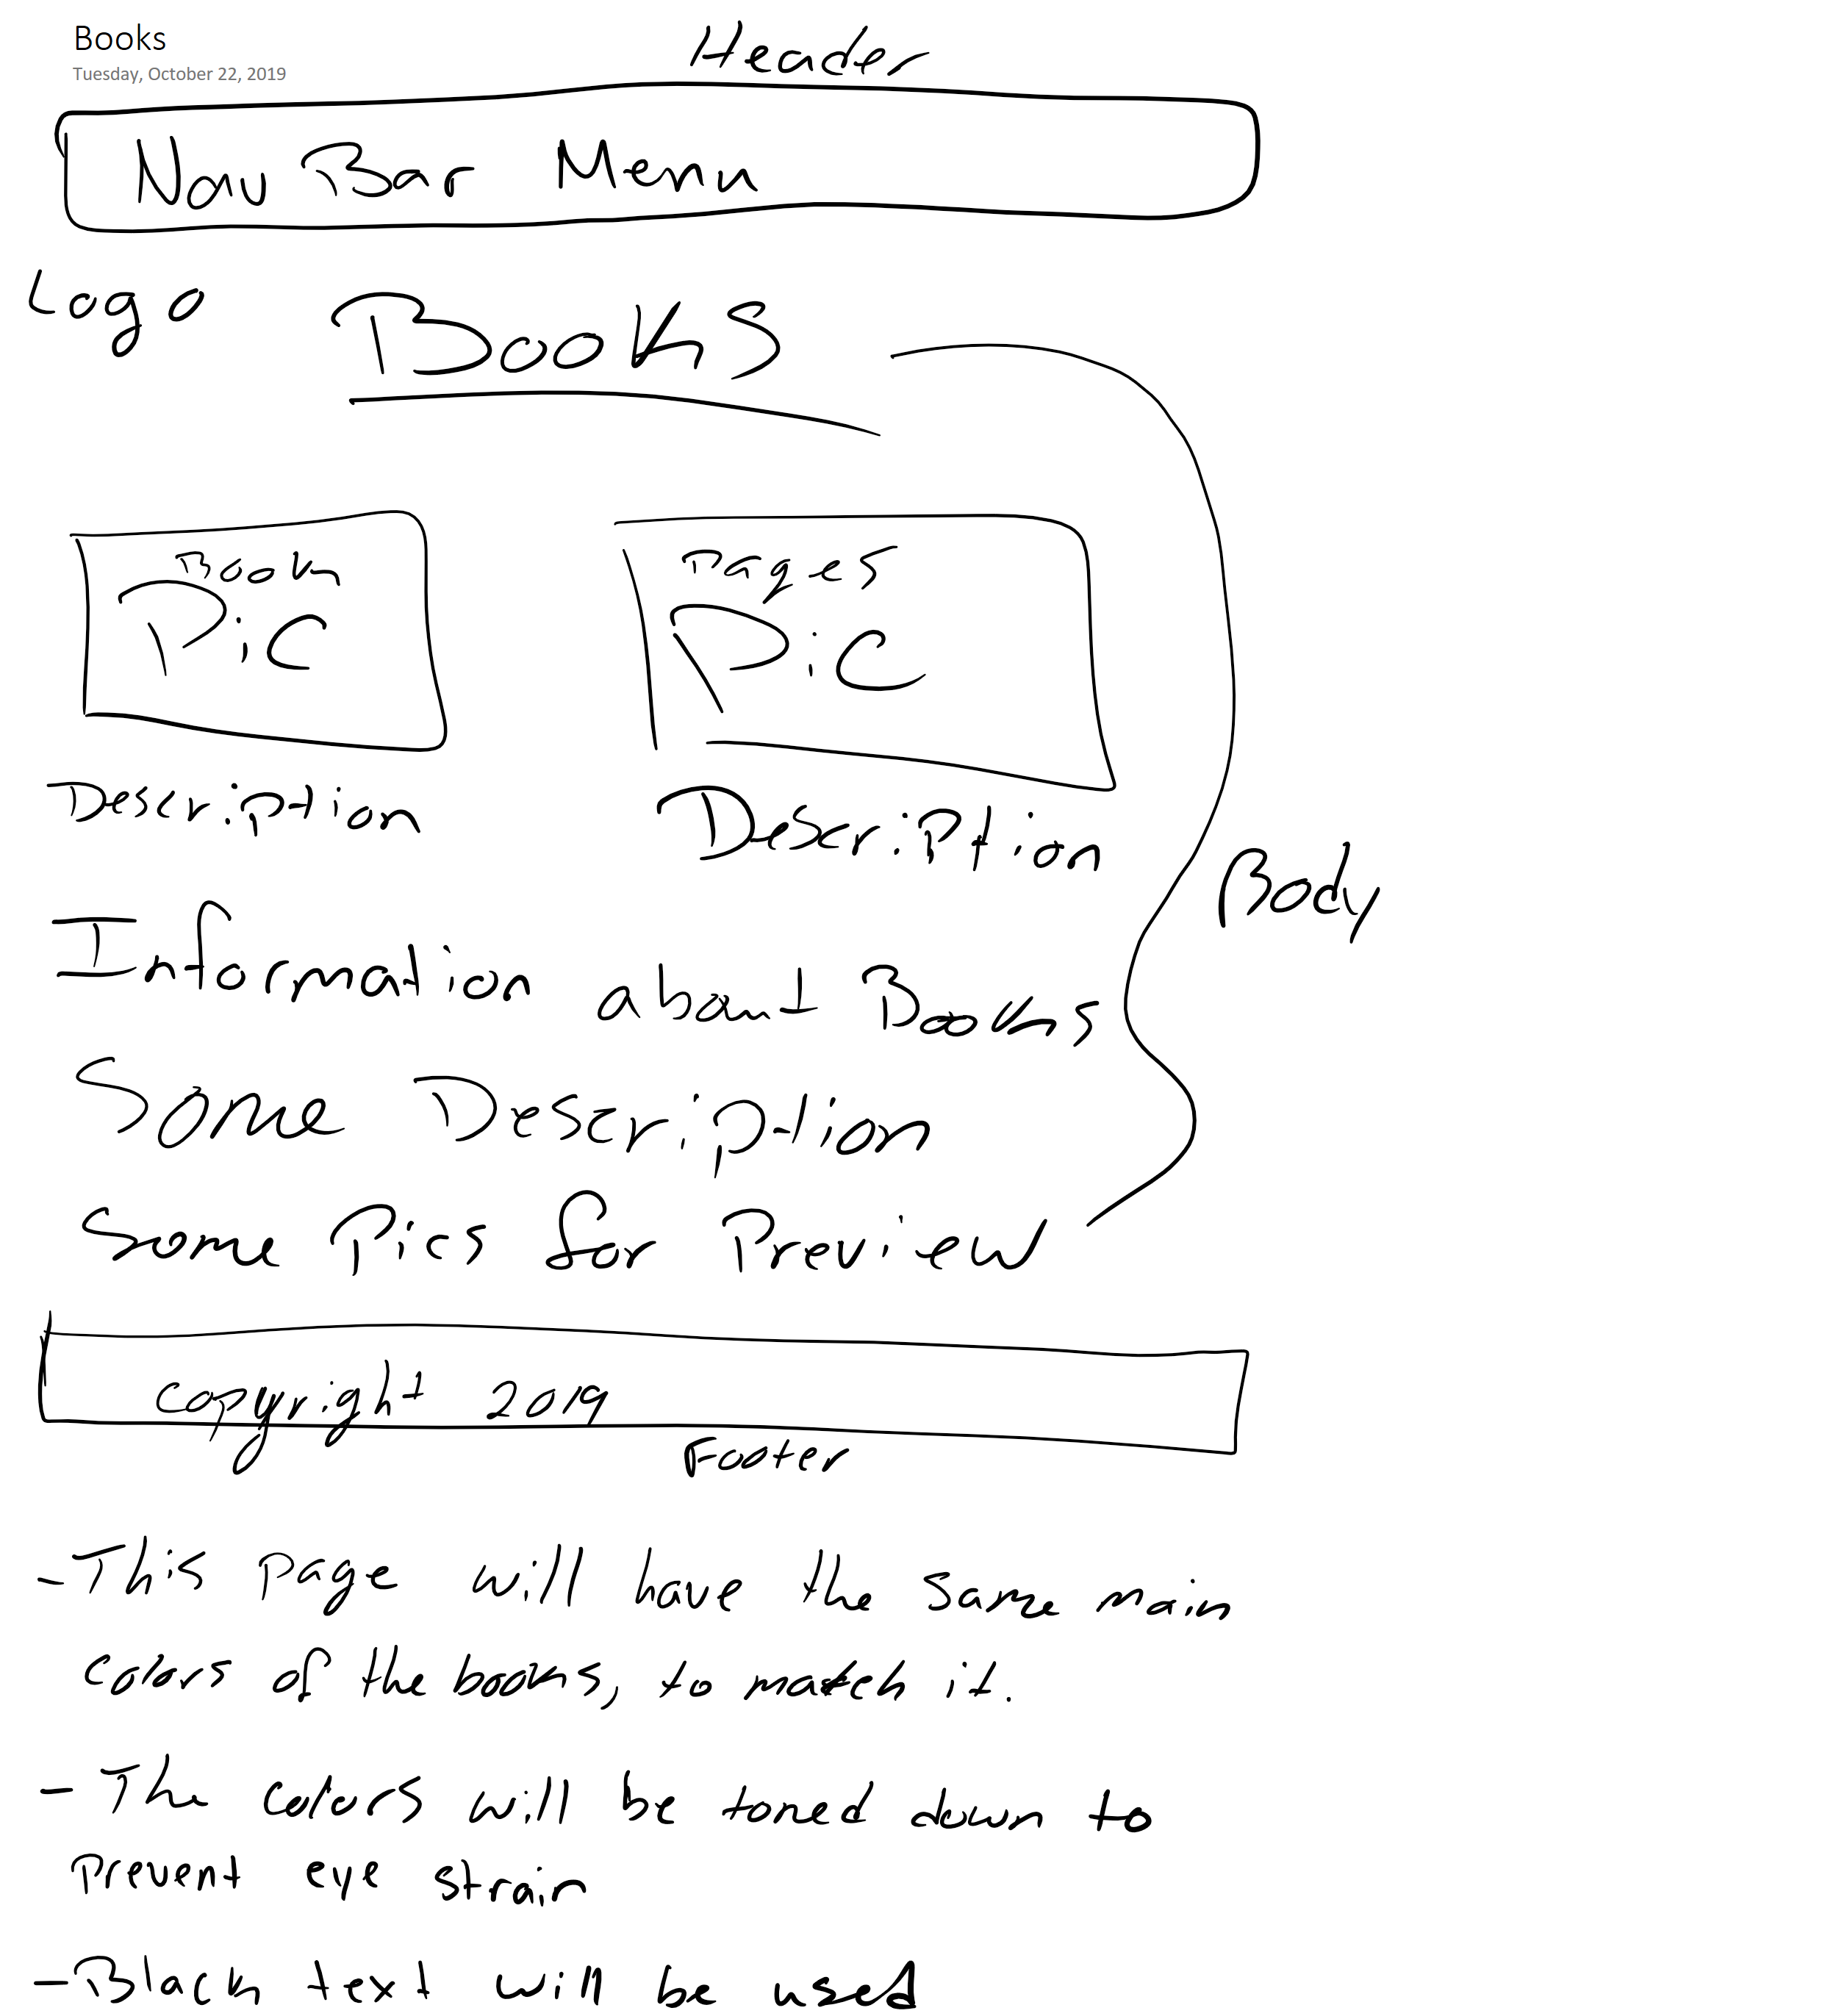 Books
Tuesday, October 22, 2019
Header
Nav Bar Menu
Logo Books
Book Pages
Pic Pic
Description Description
Body
Information about Books
Some Description
Some Pics for Preview
copyright 2019
Footer
- This Page will have the same main
colors of the books, to match it.
- The colors will be toned down to
Prevent eye strain
- Black text will be used